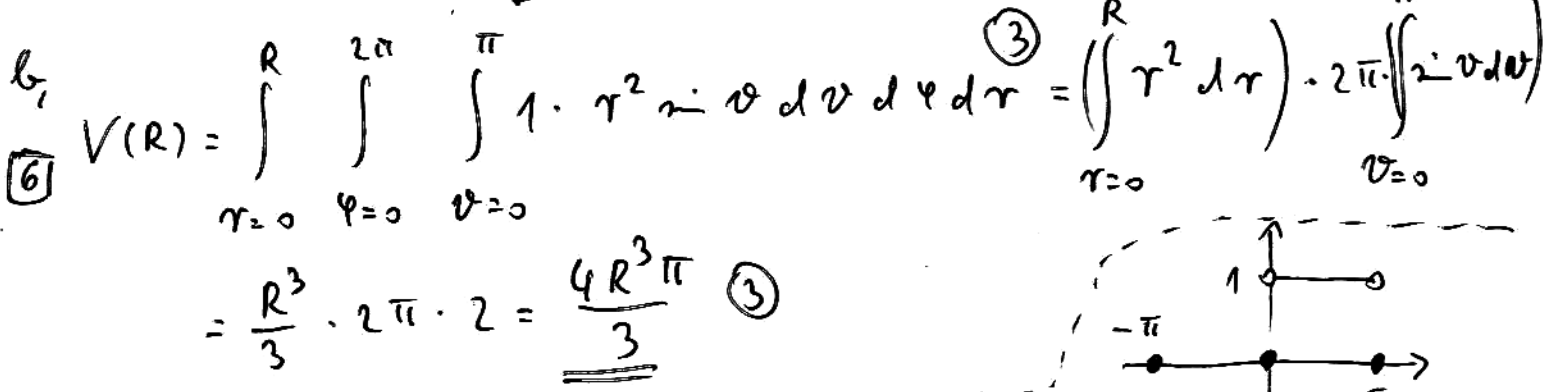 b,
[6]
V(R) = ∫_{r=0}^{R} ∫_{φ=0}^{2π} ∫_{ϑ=0}^{π} 1 · r² sin ϑ dϑ dφ dr ③ = (∫_{r=0}^{R} r² dr) · 2π · (∫_{ϑ=0}^{π} sin ϑ dϑ)
= R³/3 · 2π · 2 = 4R³π/3 ③
1
-π